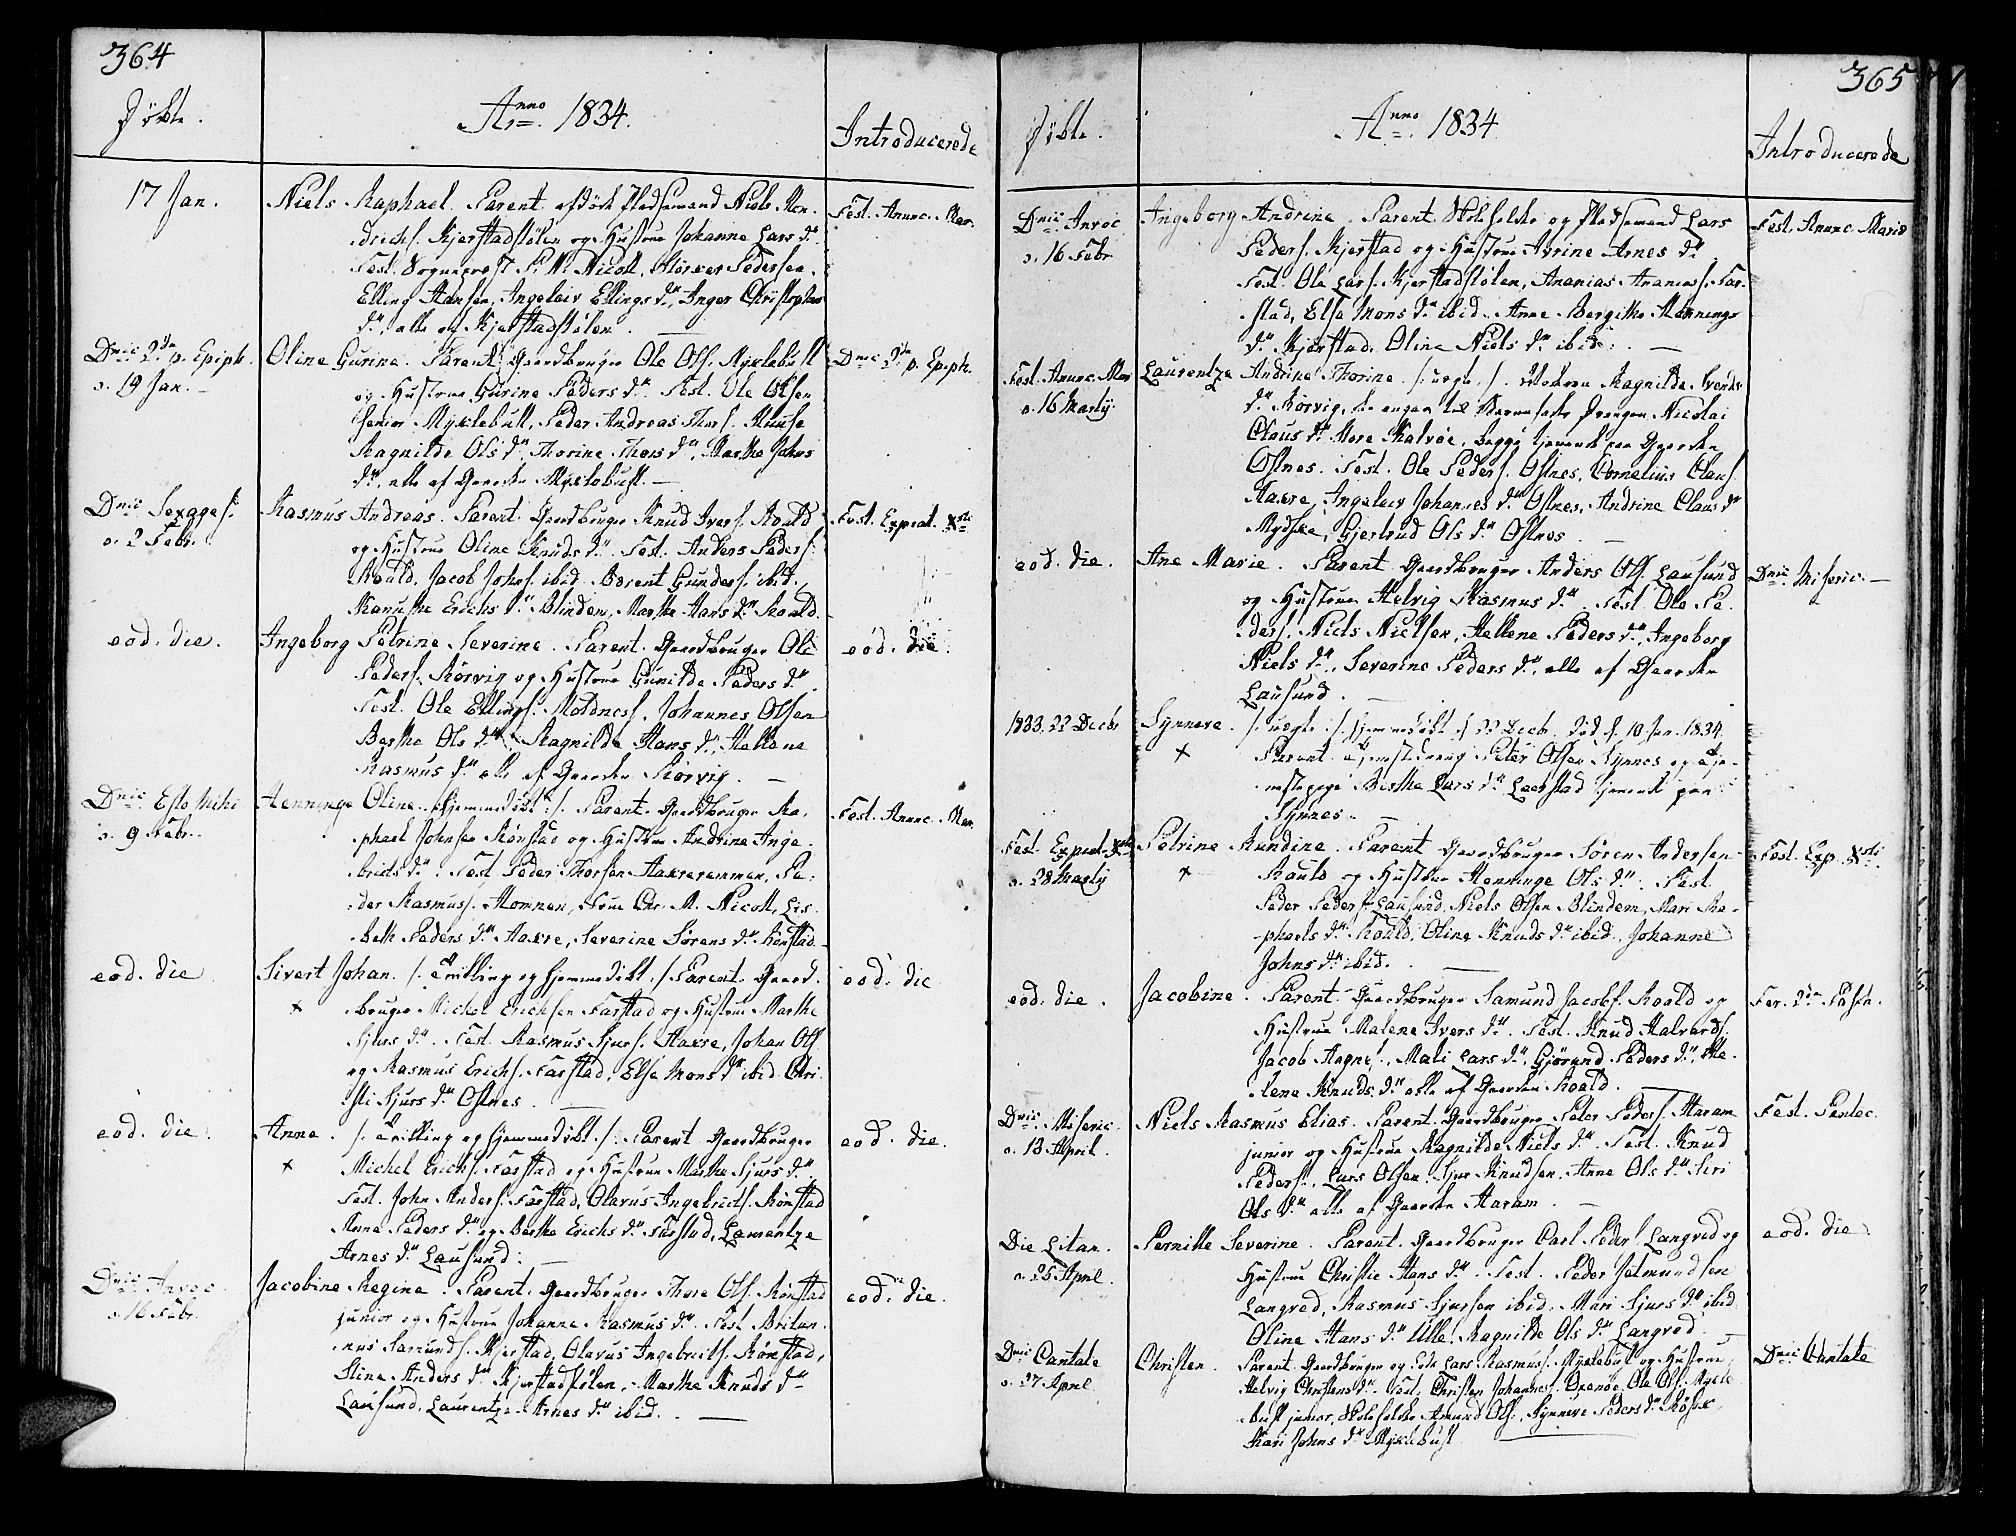 364
Døbte.
Anno 1834.
Introducerede
17 Jan.
Niels Raphael. Parent. afdøde Pladsemand Niels Hen-
drichs. Kjerstadstølen og Hustrue Johanne Lars dr.
Test. Sogneprest P. N. Nicoll, Størker Pedersen,
Elling Hansen, Ingeleiv Ellings dr, Inger Christophers
dr, alle af Kjerstadstølen.
Fest. Anunc. Mar.
Dnic 2da p. Epiph.
s. 19 Jan.
Oline Gurine. Parent. Gaardbruger Ole Ols. Myklebust
og Hustrue Gurine Peders dr. Test. Ole Olsen
senior Myklebust, Peder Andreas Thors. Huuse
Ragnilde Ols dr, Thorine Thors dr, Marthe Johns
dr, alle af Gaarden Myklebust.
Dnic 2da p. Epiph.
Dnic Sexages.
s. 2 Febr.
Rasmus Andreas. Parent. Gaardbruger Knud Ivers. Roald
og Hustrue Oline Knuds dr. Test. Anders Peders.
Roald, Jacob Johs. ibid. Berent Gunders. ibid.
Erichs dr Blindem, Marthe Hans dr Roald.
Fest. Expect. Xsti
eod. die.
Ingeborg Petrine Severine. Parent. Gaardbruger Ole
Peders. Rørvig og Hustrue Gunilde Peders dr.
Test. Ole Ellings. Moldnes, Johannes Olsen
Berthe Ols dr, Ragnilde Hans dr, Hellene
Rasmus dr alle af Gaarden Rørvig.
eod. die.
Dnic Esto Mihi
s. 9 Febr.
Henninge Oline. /:hjemmedøbt:/. Parent. Gaardbruger Ra-
phael Johnsen Rønstad og Hustrue Andrine Inge-
brits dr. Test. Peder Thorsen Aakreremmen, Pe-
der Rasmuss. Homnen, Frue Chr. M. Nicoll, Lis-
beth Peders dr Aakre, Severine Sørens dr Rønstad.
Fest. Anunc. Mar.
eod. die
Sivert Johan. /: Tvilling og hjemmedøbt :/ Parent. Gaard-
+
bruger Michel Erichsen Farstad og Hustrue Marthe
Sjurs dr. Test. Rasmus Sjurs. Aakre, Johan Ols.
og Rasmus Erichs. Farstad, Else Mons dr ibid. Chri-
sti Sjurs dr Ostnes.
eod. die
eod. die.
Anne. /: Tvilling og hjemmedøbt :/. Parent. Gaardbruger
+
Michel Erichs. Farstad og Hustrue Marthe Sjurs dr.
Test. John Anders. Farstad, Olavus Ingebrits. Rønstad
Anne Peders dr og Berthe Erichs dr Farstad, Laurentze
Arnes dr Lausund.
eod. die.
Dnic Invoc
s. 16 Febr.
Jacobine Regine. Parent. Gaardbruger Thore Ols. Rønstad
junior og Hustrue Johanne Rasmus dr. Test. Britan-
nus Samunds. Kjerstad, Olavus Ingebrits. Rønstad,
Stine Anders dr Kjerstadstølen, Marthe Knuds dr
Lausund, Laurentze Arnes dr ibid.
eod. die.
365
Døbte.
Anno 1834
Introducerede
Dnic Invoc
s. 16 Febr
Ingeborg Andrine. Parent. Skoleholder og Pladsemand Lars
Peders. Kjerstad og Hustrue Avrine Arnes dr
Test. Ole Lars. Kjerstadstølen, Ananias Ananias. Far-
stad, Else Mons dr ibid. Anne Bergitte Hennings
dr Kjerstad, Oline Niels dr ibid.
Fest. Anunc. Mariæ
Fest. Anunc. Mar
s. 16 Martij.
Laurentze Andrine Thorine. /: uægte :/. Moderen Magnilde Svends
dr Rørvig, udlagt til Barnefader Drengen Nicolai
Claus dr More Kalvøe, begge tjenende paa Gaarden
Ostnes. Test. Ole Peders. Ostnes, Cornelius Claus.
Aakre, Ingeleiv Johannes dr Ostnes, Andrine Claus dr
Gjertrud Ols dr Ostnes
eod. die.
Ane Marie. Parent Gaardbruger Anders Ols. Lausund
og Hustrue Helvig Rasmus dr. Test. Ole Pe-
ders. Niels Nielsen, Hellene Peders dr, Ingeborg
Niels dr, Severine Peders dr, alle af Gaarden
Lausund.
Dnic Miseric.
1833. 22 Decbr
Synneve. /: uægte :/. hjemmedøbt d 22 Decb. død d. 10 Jan. 1834.
+
Parent. Tjenestedreng Peter Olsen Synnes og Tje-
nestepige Berthe Lars dr Lorstad tjenende paa
Synnes.
Fest. Expect. Xsti
s. 28 Martij
Petrine Rundine. Parent Gaardbruger Søren Andersen
+
Roald og Hustrue Henninge Ols dr. Test.
Peder Peders. Lausund, Niels Olsen Blindem, Mari Ra-
phaels dr Roald, Oline Knuds dr ibid. Johanne
Johns dr ibid.
Fest. Exp. Xsti
eod. die.
Jacobine. Parent. Gaardbruger Samund Jacobs. Roald og
Hustrue Malene Ivers dr. Test. Knud Halvards.
Jacob Aagnes., Mali Lars dr, Gjørund Peders dr, Ma-
lene Knuds dr alle af Gaarden Roald.
Fer. 2da Pasch.
Dnic Miseric.
s. 13 April.
Niels Rasmus Elias. Parent. Gaardbruger Peter Peders. Haram
junior og Hustrue Ragnilde Niels dr. Test. Knud
Peders., Lars Olsen, Sjur Knudsen, Anne Ols dr, Siri
Ols dr alle af Gaarden Haram.
Fest. Pentec.
Die Litan.
s. 25 April.
Pernille Severine. Parent. Gaardbruger Carl Peders. Langved og
Hustrue Christie Hans dr. Test. Peder Jetmundsen
Langved, Rasmus Sjursen ibid. Mari Sjurs dr ibid.
Oline Hans dr Ulle, Ragnilde Ols dr Langved.
eod. die
Dnic Cantate
s. 27 April.
Christen. Parent. Gaardbruger og Lars Rasmuss. Myklebust og Hustrue
Helvig Christens dr. Test. Christen Johannes. Oxenøe, Ole Ols. Mykle-
bust junior, Skoleholder Amund Ols., Synneve Peders dr
Kari Johns dr Myklebust.
Dnic Cantate